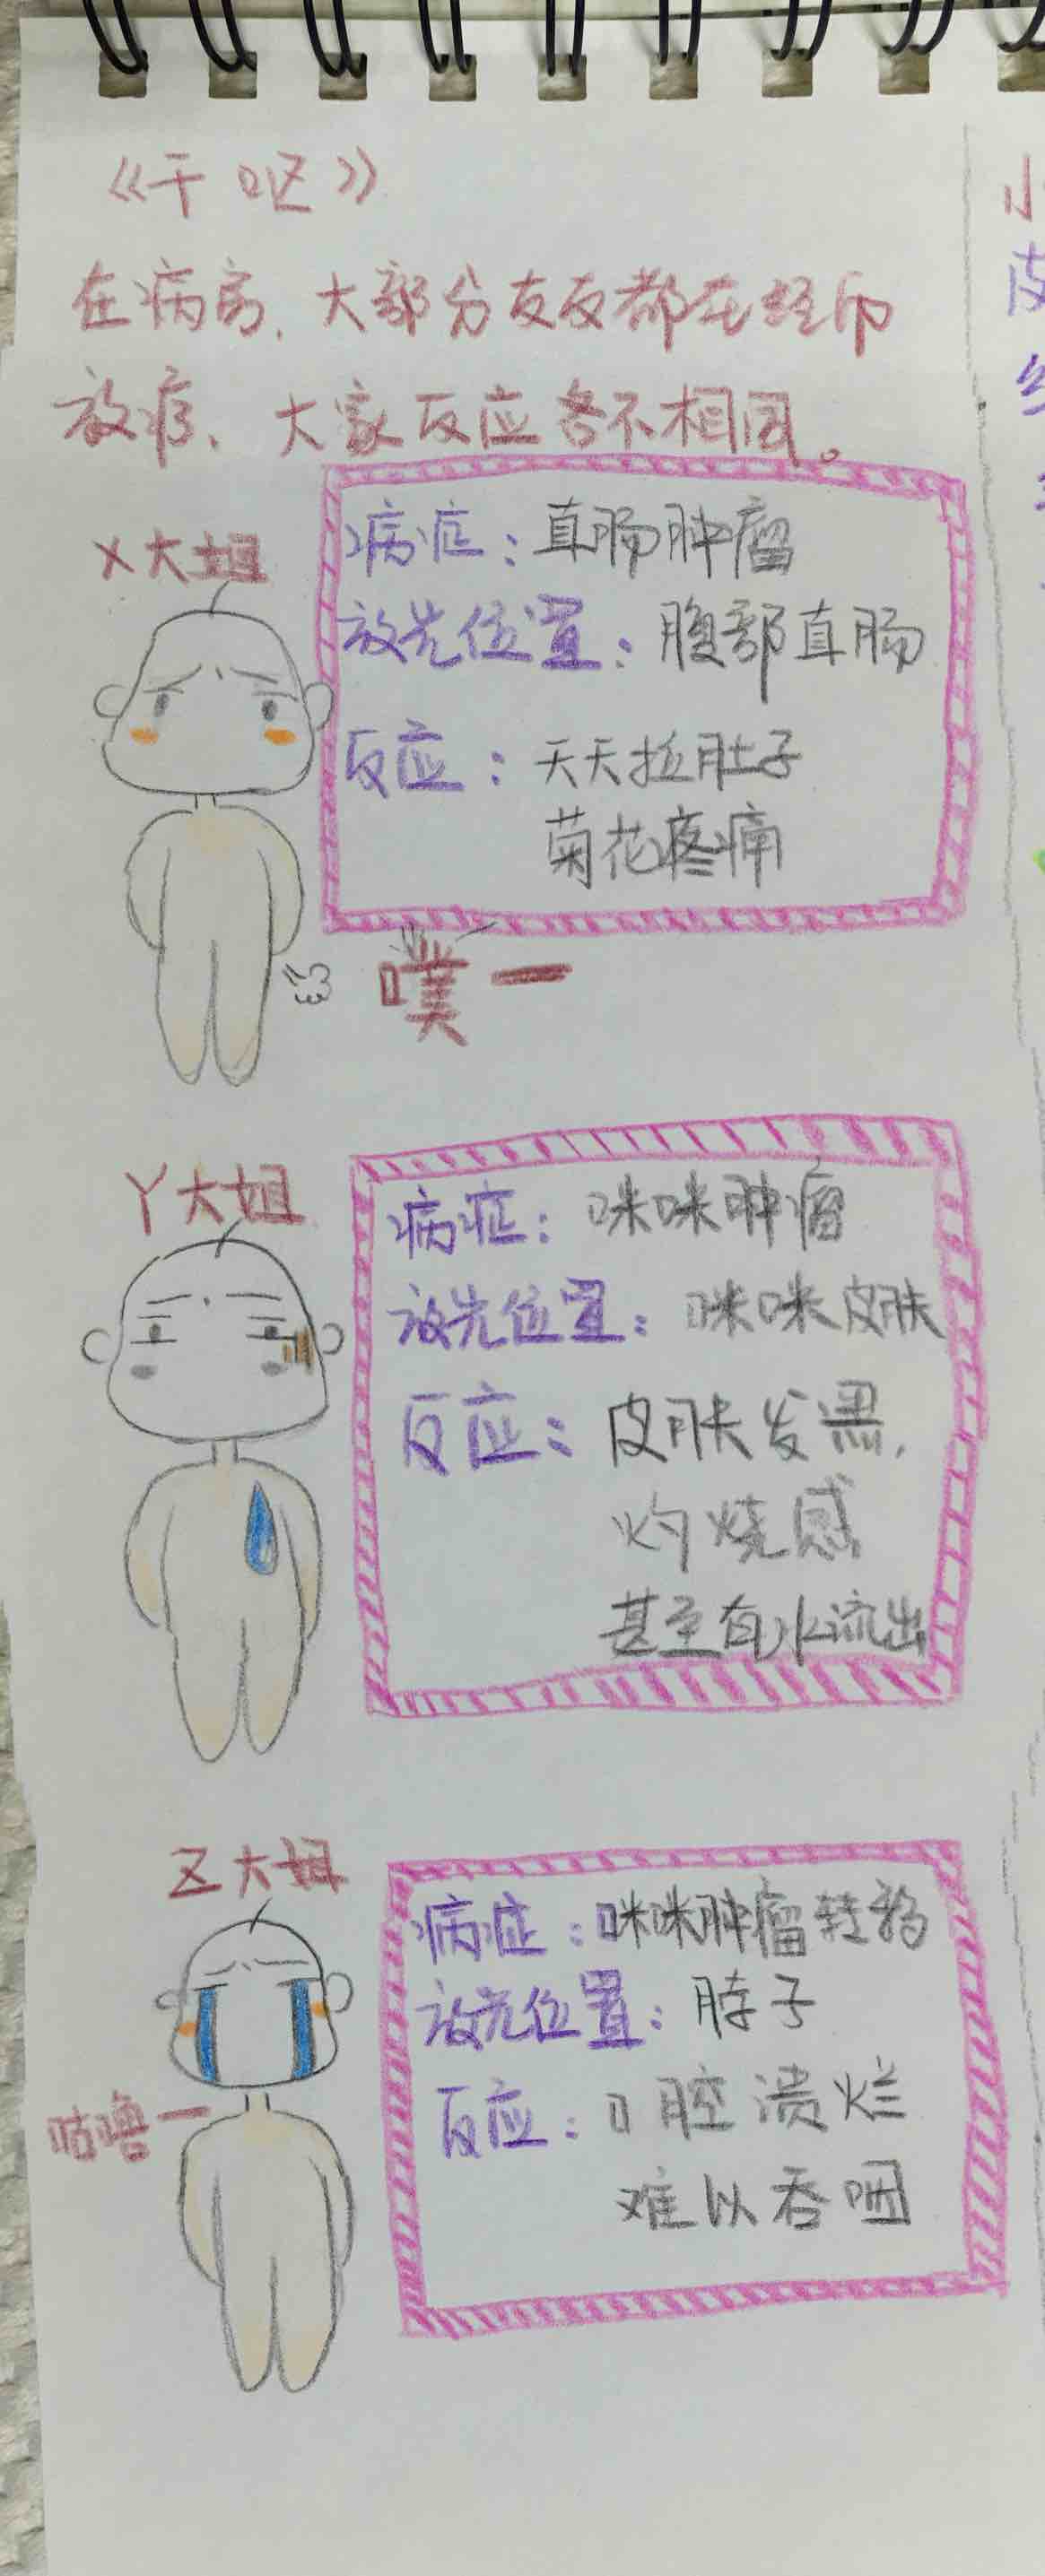 《干呕》
在病房,大部分友友都在经历
放疗、大家反应各不相同。
X大姐
病症:直肠肿瘤
放光位置:腹部直肠
反应:天天拉肚子
菊花疼痛
噗一
Y大姐
病症:咪咪肿瘤
放光位置:咪咪皮肤
反应:皮肤发黑,
灼烧感
甚至有水流出
Z大姐
病症:咪咪肿瘤转移
放光位置:脖子
咕噜一
反应:口腔溃烂
难以吞咽
小
皮